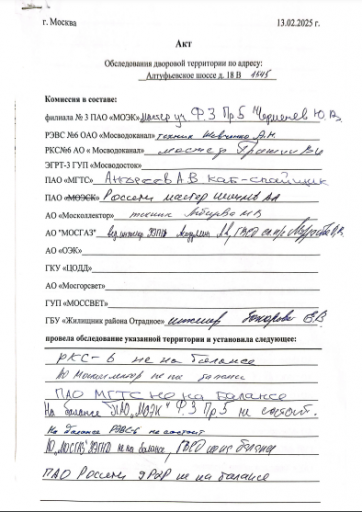 г. Москва 13.02.2025 г.
Акт
Обследования дворовой территории по адресу:
Алтуфьевское шоссе д. 18 В
Комиссия в составе:
филиала № 3 ПАО «МОЭК» мастер уч. Ф.3 Пр5
РЭВС №6 ОАО «Мосводоканал» техник
РКС№6 АО « Мосводоканал» мастер
ЭГРТ-3 ГУП «Мосводосток»
ПАО «МГТС» Андреев А.В каб-спайщик
ПАО «МОЭСК» Россети мастер
АО «Москоллектор» техник
АО "МОСГАЗ"
АО «ОЭК»
ГКУ «ЦОДД»
АО «Мосгорсвет»
ГУП «МОССВЕТ»
ГБУ «Жилищник района Отрадное» инженер
провела обследование указанной территории и установила следующее:
РКС-6 не на балансе
АО Москоллектор не на балансе
ПАО МГТС не на балансе
На балансе ПАО „МОЭК" Ф.3 Пр.5 не состоит.
На балансе РЭВС6 не состоит
АО „МОСГАЗ" не на балансе,
ПАО Россети не на балансе